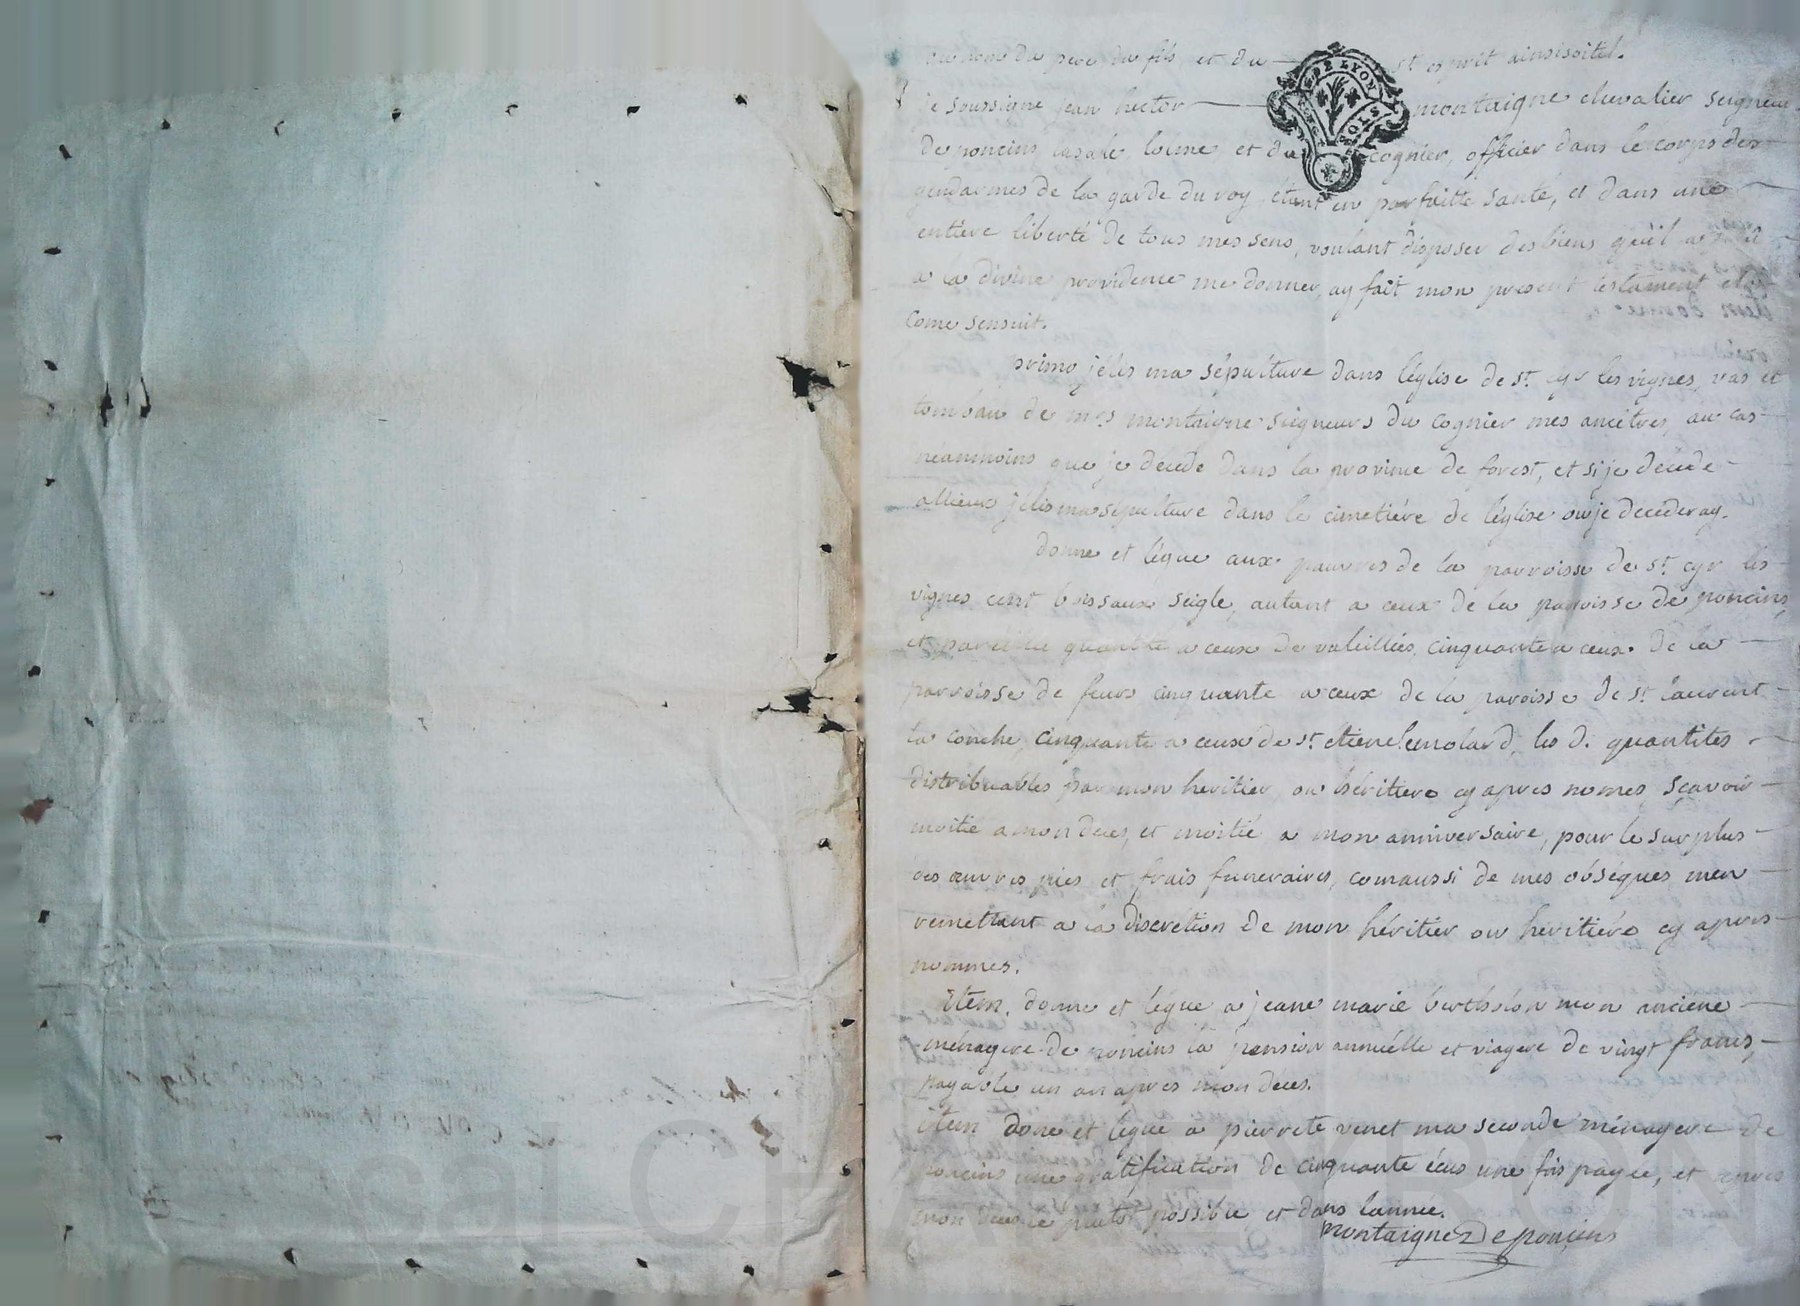 au nom du pere du fils et du st esprit ainsisoitil.
je soussigne jean hector montaigne chevalier seigneur
De poncins et du cognier, officier dans le corps des
gendarmes de la garde du roy étant en parfaitte santé, et dans une
entiere liberté de tous mes sens, voulant disposer des biens qu'il a plut
a la divine providence me donner, ay fait mon present testament et
come sensuit.
primo jélis ma sépulture dans léglise de st. cyr les vignes, vas et
tombeau de mrs montaigne seigneurs du cognier mes ancétres, au cas
néanmoins que je décede dans la province de forest, et si je decede
allieur jelis ma sépulture dans le cimetiére de léglise ou je decederay.
donne et légue aux pauvres de la parroisse de st. cyr les
vignes cent boissaux seigle, autant a ceux de la paroisse de poncins,
et pareille quantité a ceux de valeillies, cinquante a ceux de la
parroisse de feurs cinquante a ceux de la paroisse de st. laurent
la conche, cinquante a ceux de st. etienelemolard, les d. quantités
distribuables par mon heritier ou héritiere cy apres només, sçavoir
moitié a mon deces, et moitié a mon anniversaire, pour le surplus
des œuvres pies et frais funeraires, comaussi de mes obséques men
remettant a la discretion de mon héritier ou heritiére cy apres
nommés.
item. donne et légue a jeane marie bertholon mon anciene
ménagere de poncins la pension annuélle et viagere de vingt francs,
payable un an apres mon deces.
item done et légue a pierrete venet ma seconde ménagere de
poncins une gratification de cinquante écus une fois payée, et apres
mon deces le plutot possible et dans lannée.
Montaigne De poncins
DE LYON
SOLS
cal CHAMBON